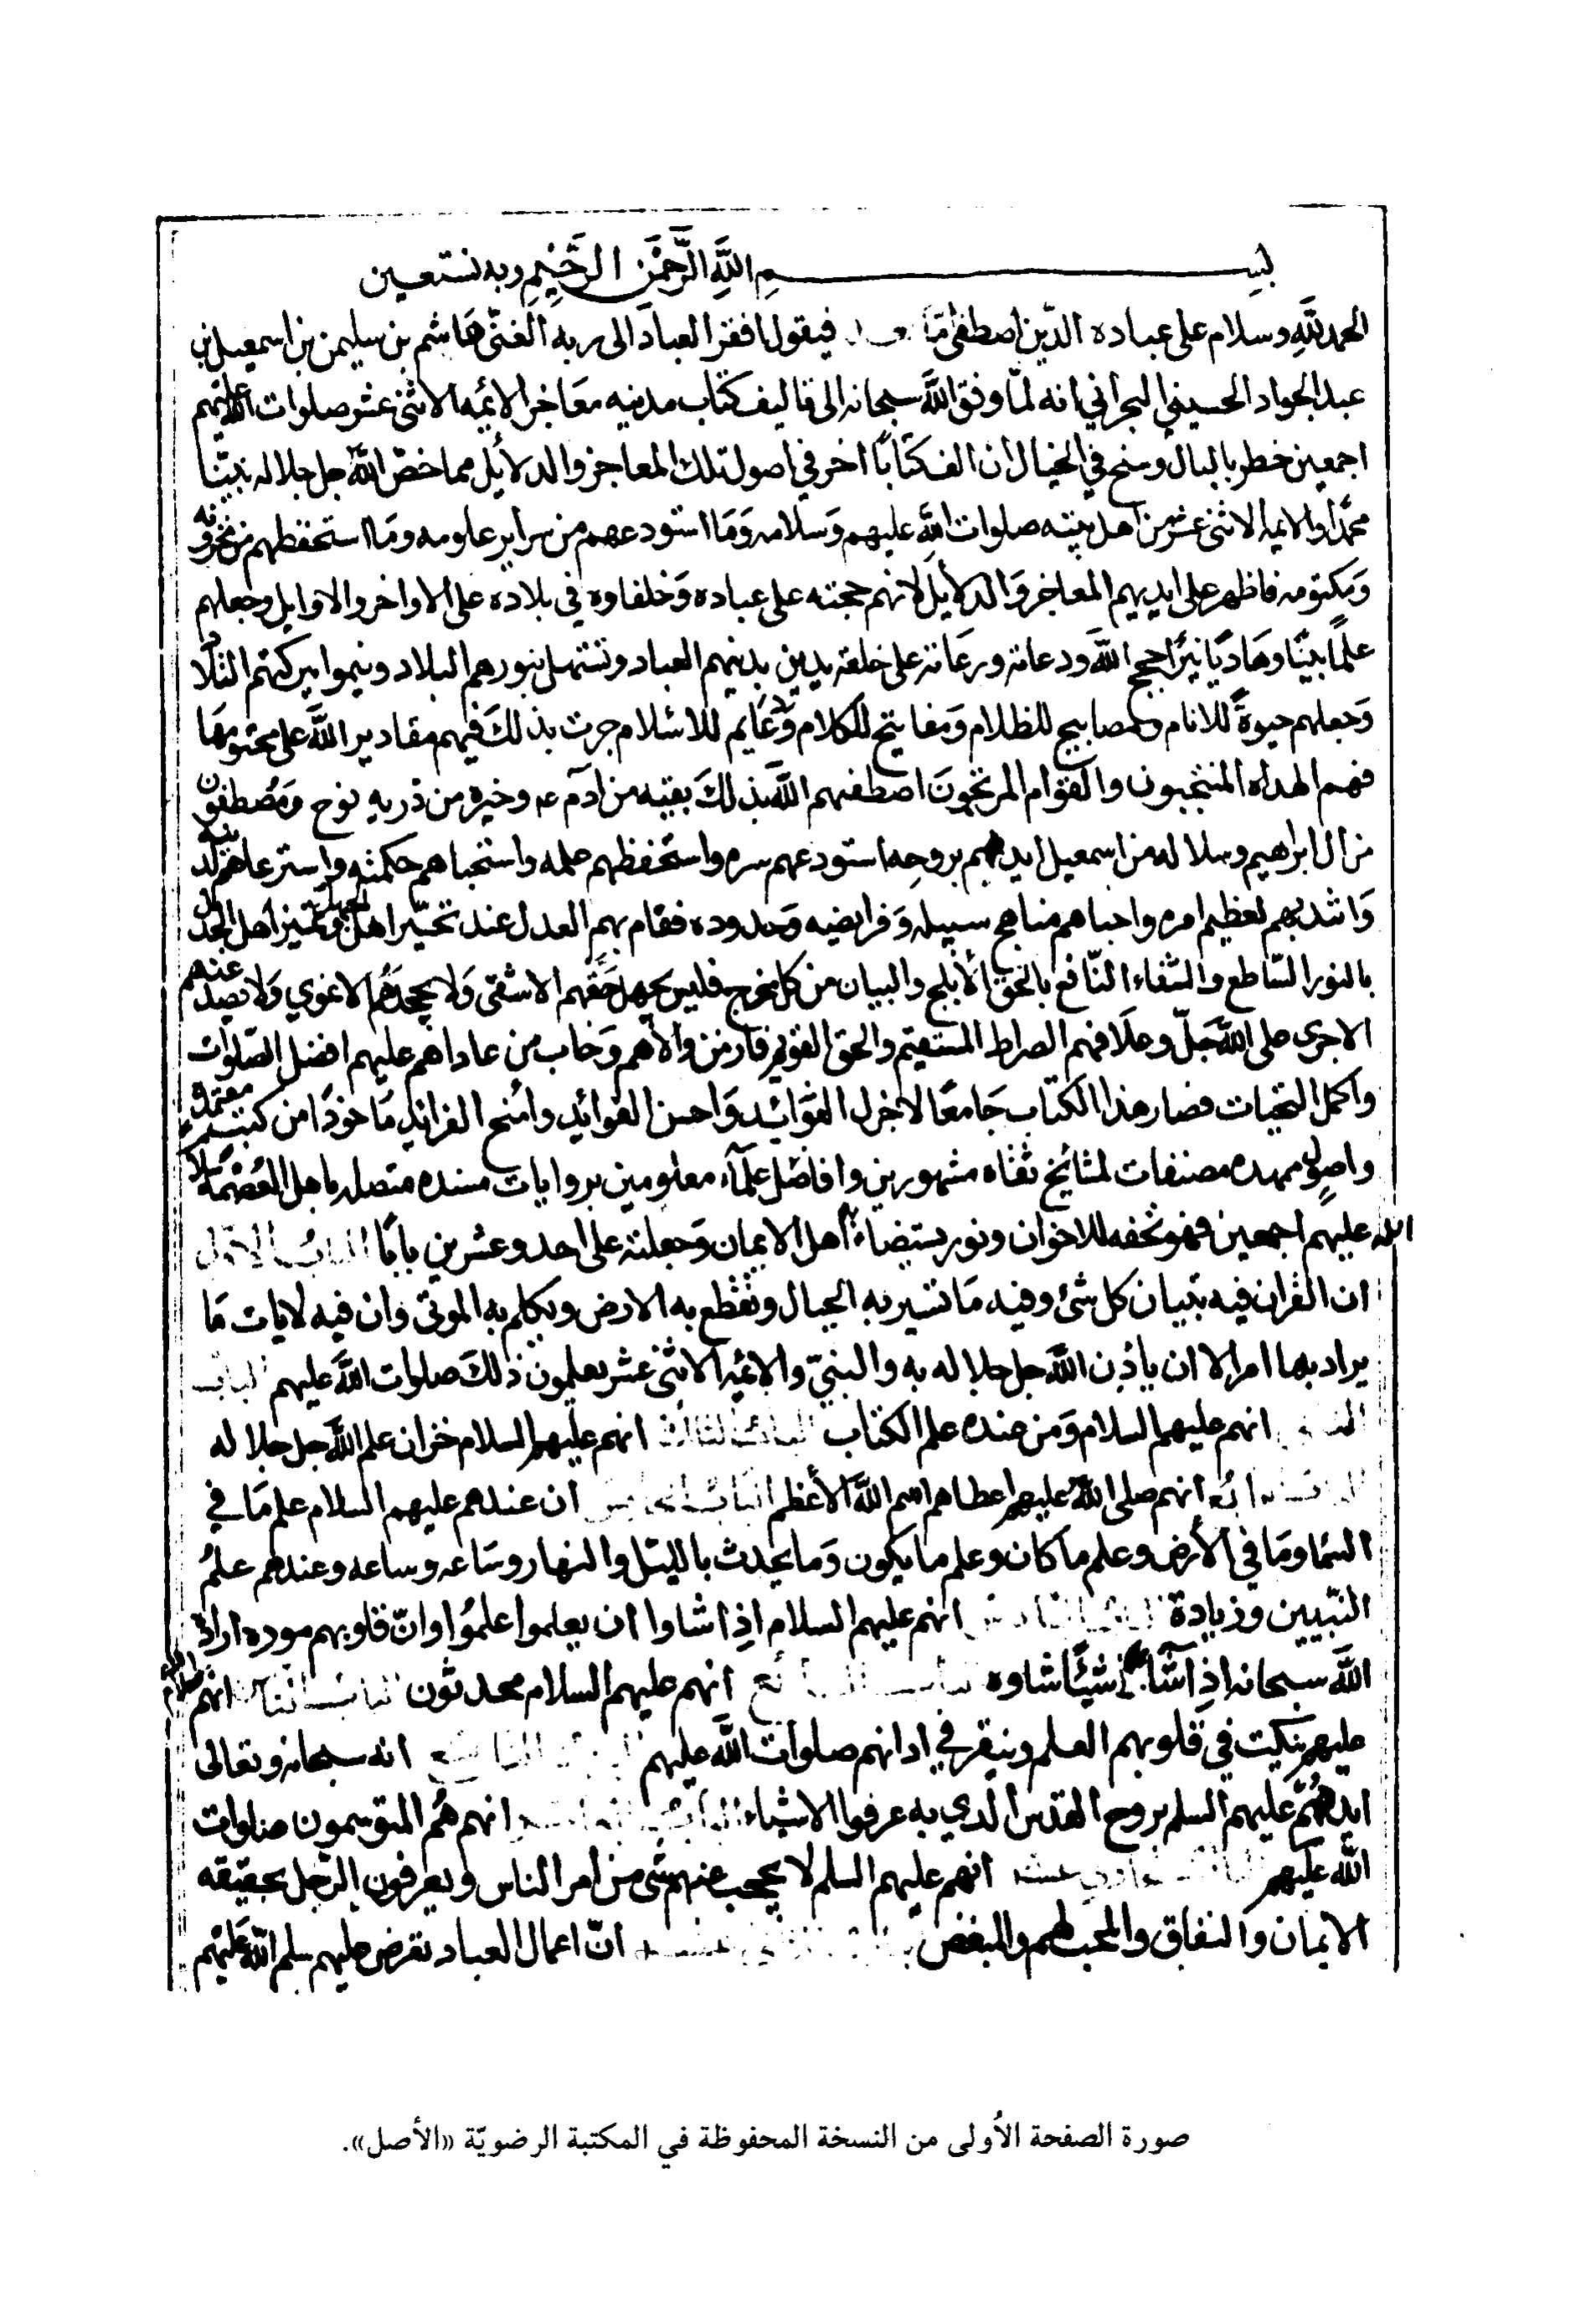 بسم الله الرحمن الرحيم وبه نستعين
الحمد لله وسلام على عباده الذين اصطفى امّا فيقول افقر العباد الى ربه الغنى هاشم بن سليمن بن اسمعيل بن
عبد الجواد الحسيني البحراني انه لمّا وفق الله سبحانه الى تاليف كتاب مدنيه معاجز الائمه الاثنى عشر صلوات الله عليهم
اجمعين خطر بالبال وسنح في الخيال ان الف كتابًا اخر في اصول تلك المعاجز والدلايل مما خصّ الله جل جلاله نبيّنا
محمّدًا والايمه الاثنى عشر من اهل بيته صلوات الله عليهم وسلامه وما استودعهم من سراير علومه وما استحفظهم من مخزونه
ومكتومه فاظهر على ايديهم المعاجز والدلايل لانهم حججه على عباده وخلفاوه في بلاده على الاواخر والاوايل وجعلهم
علمًا بيّنًا وهاديًا نيرًا حجج الله ودعاته ورعاته على خلقه يدين بدينهم العباد وتستهل بنورهم البلاد وينموا ببركتهم التلاد
وجعلهم حيوةً للانام ومصابيح للظلام ومفاتيح للكلام ودعايم للاسلام جرت بذلك فيهم مقادير الله على محتومها
فهم الهداه المنتجبون والقوام المرتجون اصطفهم الله بذلك بقيه من ادم ع وخيره من ذريه نوح ومصطفون
من ال ابراهيم وسلاله من اسمعيل ايدهم بروحه استودعهم سره واستحفظهم علمه واستحباهم حكمته واسترعاهم لدينه
وانتدبهم لعظيم امره واحباهم مناهج سبيله وفرايضه وحدوده فقام بهم العدل عند تحيّر اهل الجهل وتحيير اهل الجدل
بالنور الساطع والشفاء النّافع بالحق الأبلج والبيان من كل مخرج فليس يجهل حقهم الا شقى ولا يجحدهم الا غوي ولا يصد عنهم
الا جرى على الله جلّ وعلا فهم الصراط المستقيم والحق القويم فاز من والاهم وخاب من عاداهم عليهم افضل الصّلوات
واكمل التحيات فصار هذا الكتاب جامعًا لاجزل العوائد واحسن الفوائد وامنح الفرائد ماخوذًا من كتب معتمده
واصول ممهده مصنفات لمشائخ ثقاه مشهورين وافاضل علماء معلومين بروايات مسنده متصله باهل العصمه سلام
الله عليهم اجمعين فهو تحفه للاخوان ونور يستضاء به اهل الايمان وجعلته على احد وعشرين بابًا الباب الاول
ان القران فيه تبيان كل شئ وفيه ما تسير به الجبال وتقطع به الارض ويكلم به الموتى وان فيه لايات ما
يراد بها امر الا ان ياذن الله جل جلاله به والنبيّ والائمه الاثنى عشر يعلمون ذلك صلوات الله عليهم الباب
انهم عليهم السلام ومن عنده علم الكتاب الباب الثالث انهم عليهم السلام خزان علم الله جل جلاله
انهم صلى الله عليهم اعطاهم اسم الله الأعظم الباب الخامس ان عندهم عليهم السلام علم ما في
السما وما في الأرض وعلم ما كان وعلم ما يكون وما يحدث بالليل والنهار وساعه وساعه وعندهم علم
النبيين وزيادة الباب السادس انهم عليهم السلام اذا شاوا ان يعلموا علموا وانّ قلوبهم مورد ارادة
الله سبحانه اذا شاء شيئًا شاوه انهم عليهم السلام محدثون الباب الثامن انهم
عليهم ينكت في قلوبهم العلم وينقر في اذانهم صلوات الله عليهم انه سبحانه وتعالى
ايدهم عليهم السلم بروح القدس الذي به عرفوا الاشياء انهم هم المتوسمون صلوات
الله عليهم انهم عليهم السلم لا يحجب عنهم شى من امر الناس ويعرفون الرجل بحقيقه
الايمان والنفاق والمحب لهم والمبغض انّ اعمال العباد تعرض عليهم سلم الله عليهم
صورة الصفحة الأولى من النسخة المحفوظة في المكتبة الرضويّة «الأصل».